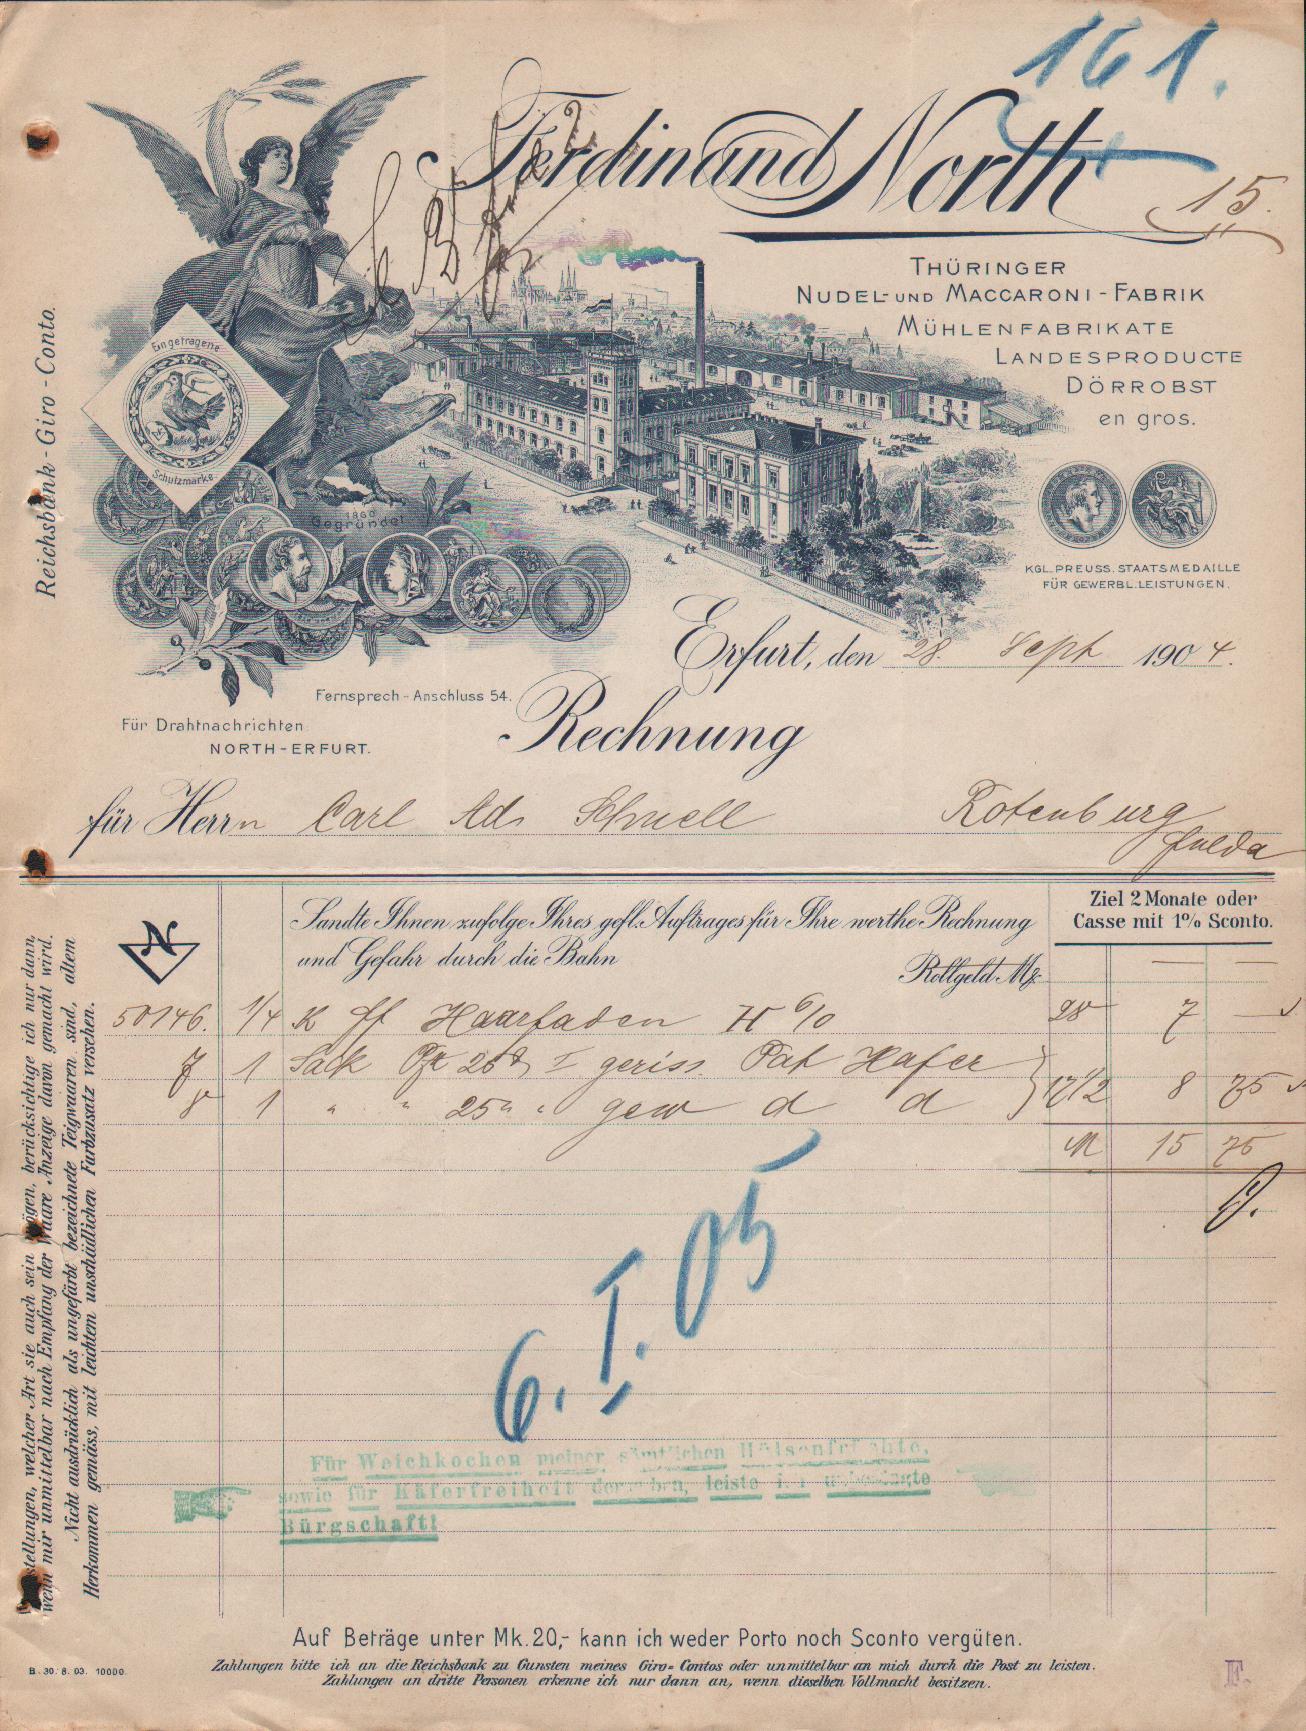 161.
Ferdinand North
15.
THÜRINGER
NUDEL- UND MACCARONI-FABRIK
MÜHLENFABRIKATE
LANDESPRODUCTE
DÖRROBST
en gros.
Eingetragene
Schutzmarke
1860
Gegründet
KGL. PREUSS. STAATSMEDAILLE
FÜR GEWERBL. LEISTUNGEN.
Reichsbank-Giro-Conto.
Erfurt, den 28. Sept 1904.
Fernsprech-Anschluss 54.
Für Drahtnachrichten
NORTH-ERFURT.
Rechnung
für Herrn Carl Ad. Schnell Rotenburg
Fulda
Ziel 2 Monate oder
Casse mit 1% Sconto.
N
Sandte Ihnen zufolge Ihres gefl. Auftrages für Ihre werthe Rechnung
und Gefahr durch die Bahn
Rollgeld Mk.
50146. 1/4 K ff Haarfaden 28 7 —
7 1 Sack I geriss. Hafer
8 1 " " 25 " " gew d d 17 1/2 8 75
M 15 75
6. I. 05
Für Weichkochen meiner sämtlichen Hülsenfrüchte,
sowie für Käferfreiheit derselben, leiste ich unbedingte
Bürgschaft!
stellungen, welcher Art sie auch sein mögen, berücksichtige ich nur dann,
wenn mir unmittelbar nach Empfang der Waare Anzeige davon gemacht wird.
Nicht ausdrücklich als ungefärbt bezeichnete Teigwaaren sind, altem
Herkommen gemäss, mit leichtem unschädlichen Farbzusatz versehen.
Auf Beträge unter Mk. 20,- kann ich weder Porto noch Sconto vergüten.
B. 30. 8. 03. 10000.
Zahlungen bitte ich an die Reichsbank zu Gunsten meines Giro-Contos oder unmittelbar an mich durch die Post zu leisten.
Zahlungen an dritte Personen erkenne ich nur dann an, wenn dieselben Vollmacht besitzen.
F.